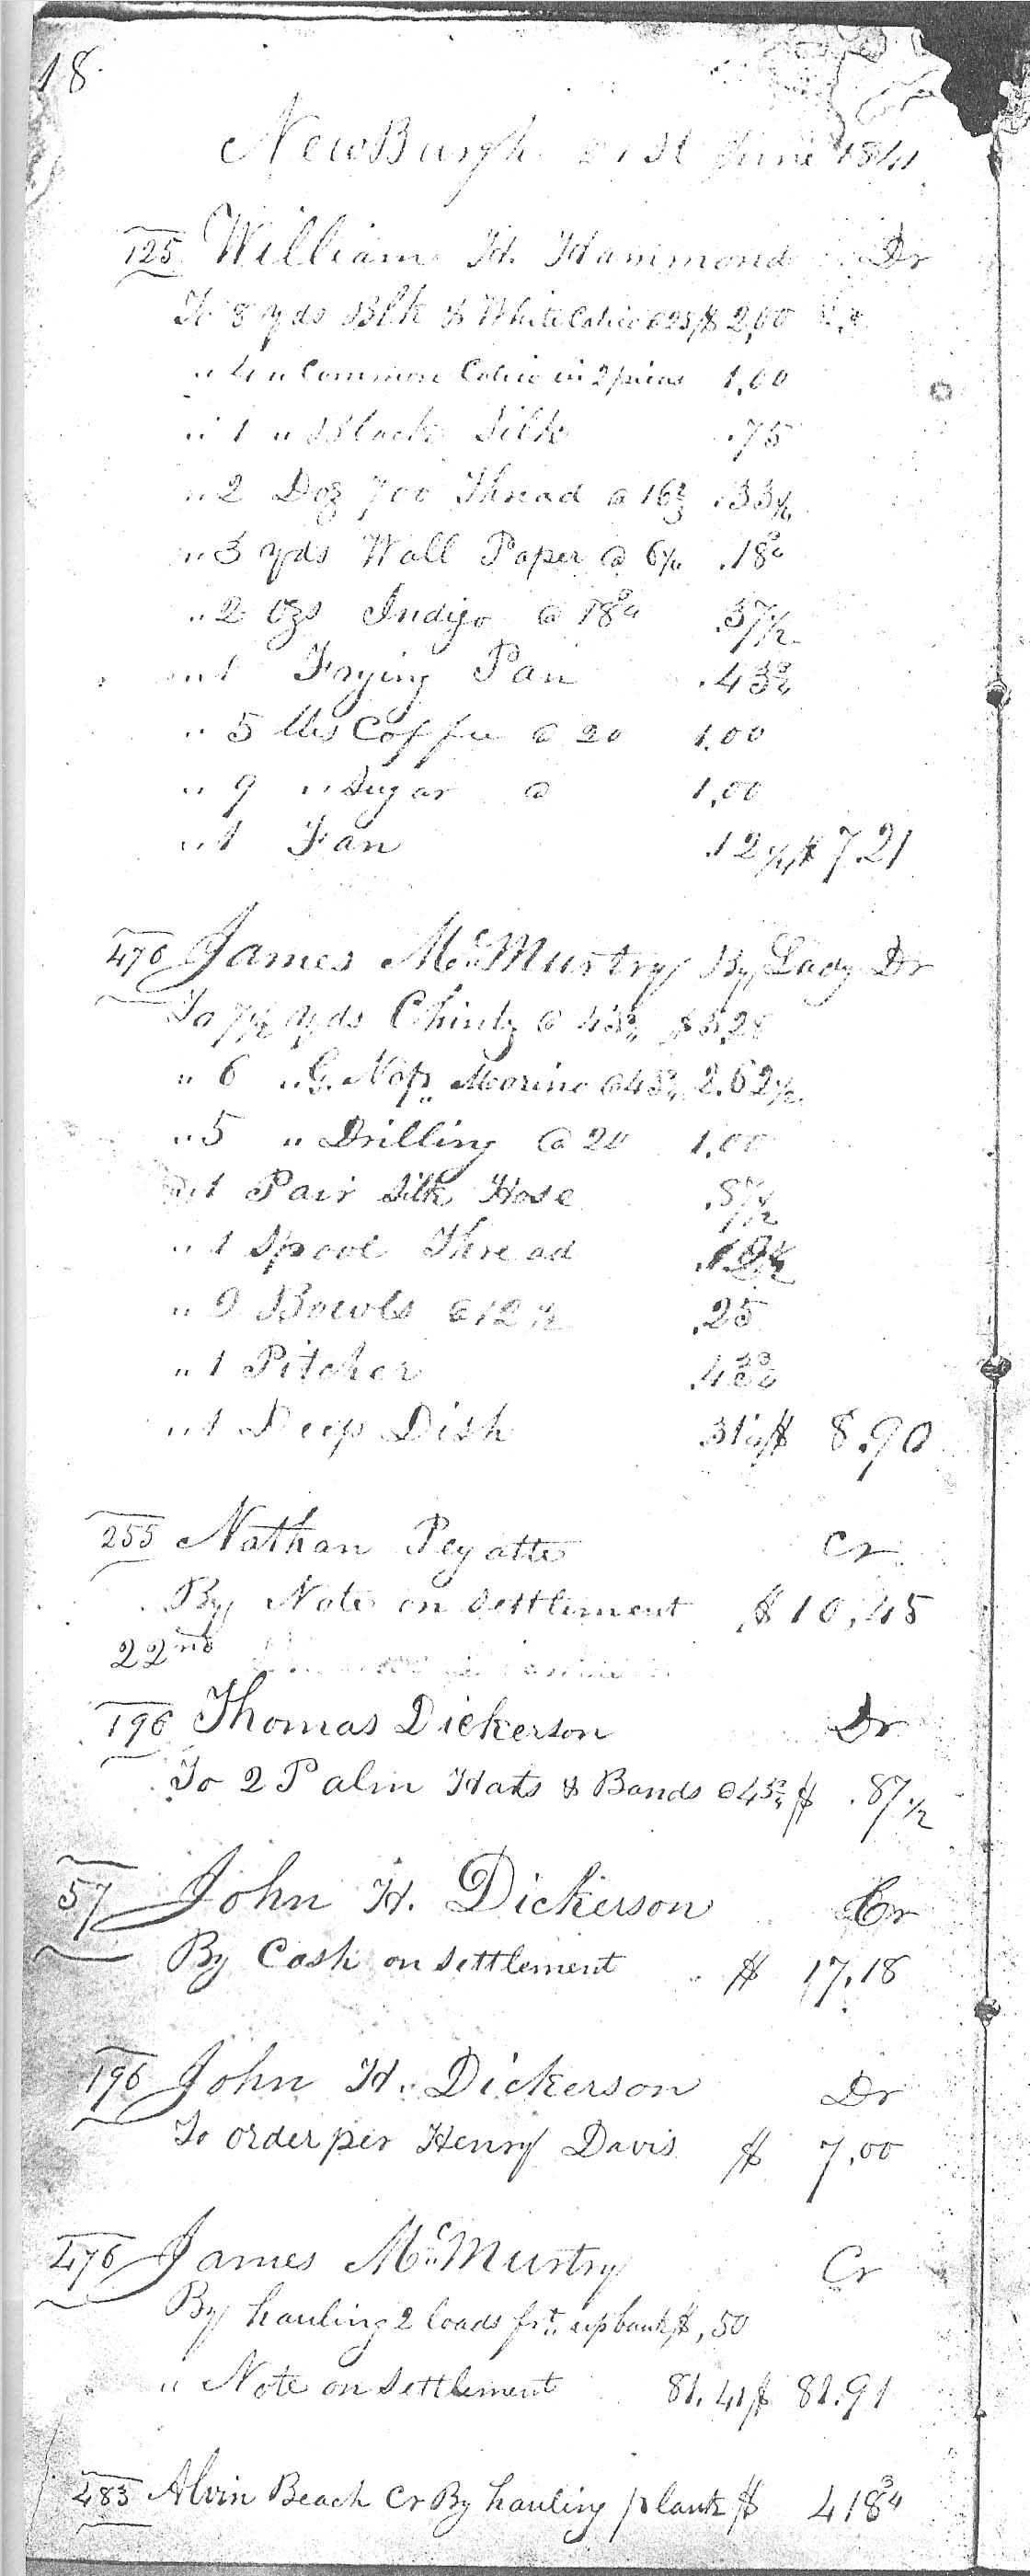 18.
NewBurgh 21st June 1841
125 William H. Hammond Dr
To 8 yds Blk & White Calico @25 $ 2,00
" 4 " Common Calico in 2 pieces 1,00
" 1 " Black Silk .75
" 2 Doz 700 Thread @ 16 2/3 .33 1/2
" 3 yds Wall Paper @ 6 1/4 .18 3/4
" 2 ozs Indigo @ 18 3/4 .37 1/2
" 1 Frying Pan .43 3/4
" 5 lbs Coffee @ 20 1.00
" 9 " Sugar @ 1,00
" 1 Fan .12 1/2 $ 7.21
476 James McMurtry By Lady Dr
To 7 1/2 yds Chintz @ 43 3/4 $ 3,28
" 6 " G. Nap Marino @ 43 3/4 2.62 1/2
" 5 " Drilling @ 20 1.00
" 1 Pair Silk Hose .87 1/2
" 1 Spool Thread .12 1/2
" 2 Bowls @ 12 1/2 .25
" 1 Pitcher .43 3/4
" 1 Deep Dish .31 1/4 $ 8.90
255 Nathan Peyatte Cr
By Note on Settlement $ 10,45
22nd
196 Thomas Dickerson Dr
To 2 Palm Hats & Bands @ 43 3/4 $ .87 1/2
57 John H. Dickerson Cr
By Cash on Settlement $ 17,18
196 John H. Dickerson Dr
To order per Henry Davis $ 7,00
476 James McMurtry Cr
By hauling 2 loads frt. up bank $ ,50
" Note on Settlement 81,41 $ 81.91
483 Alvin Beach Cr By hauling plank $ 4 18 3/4